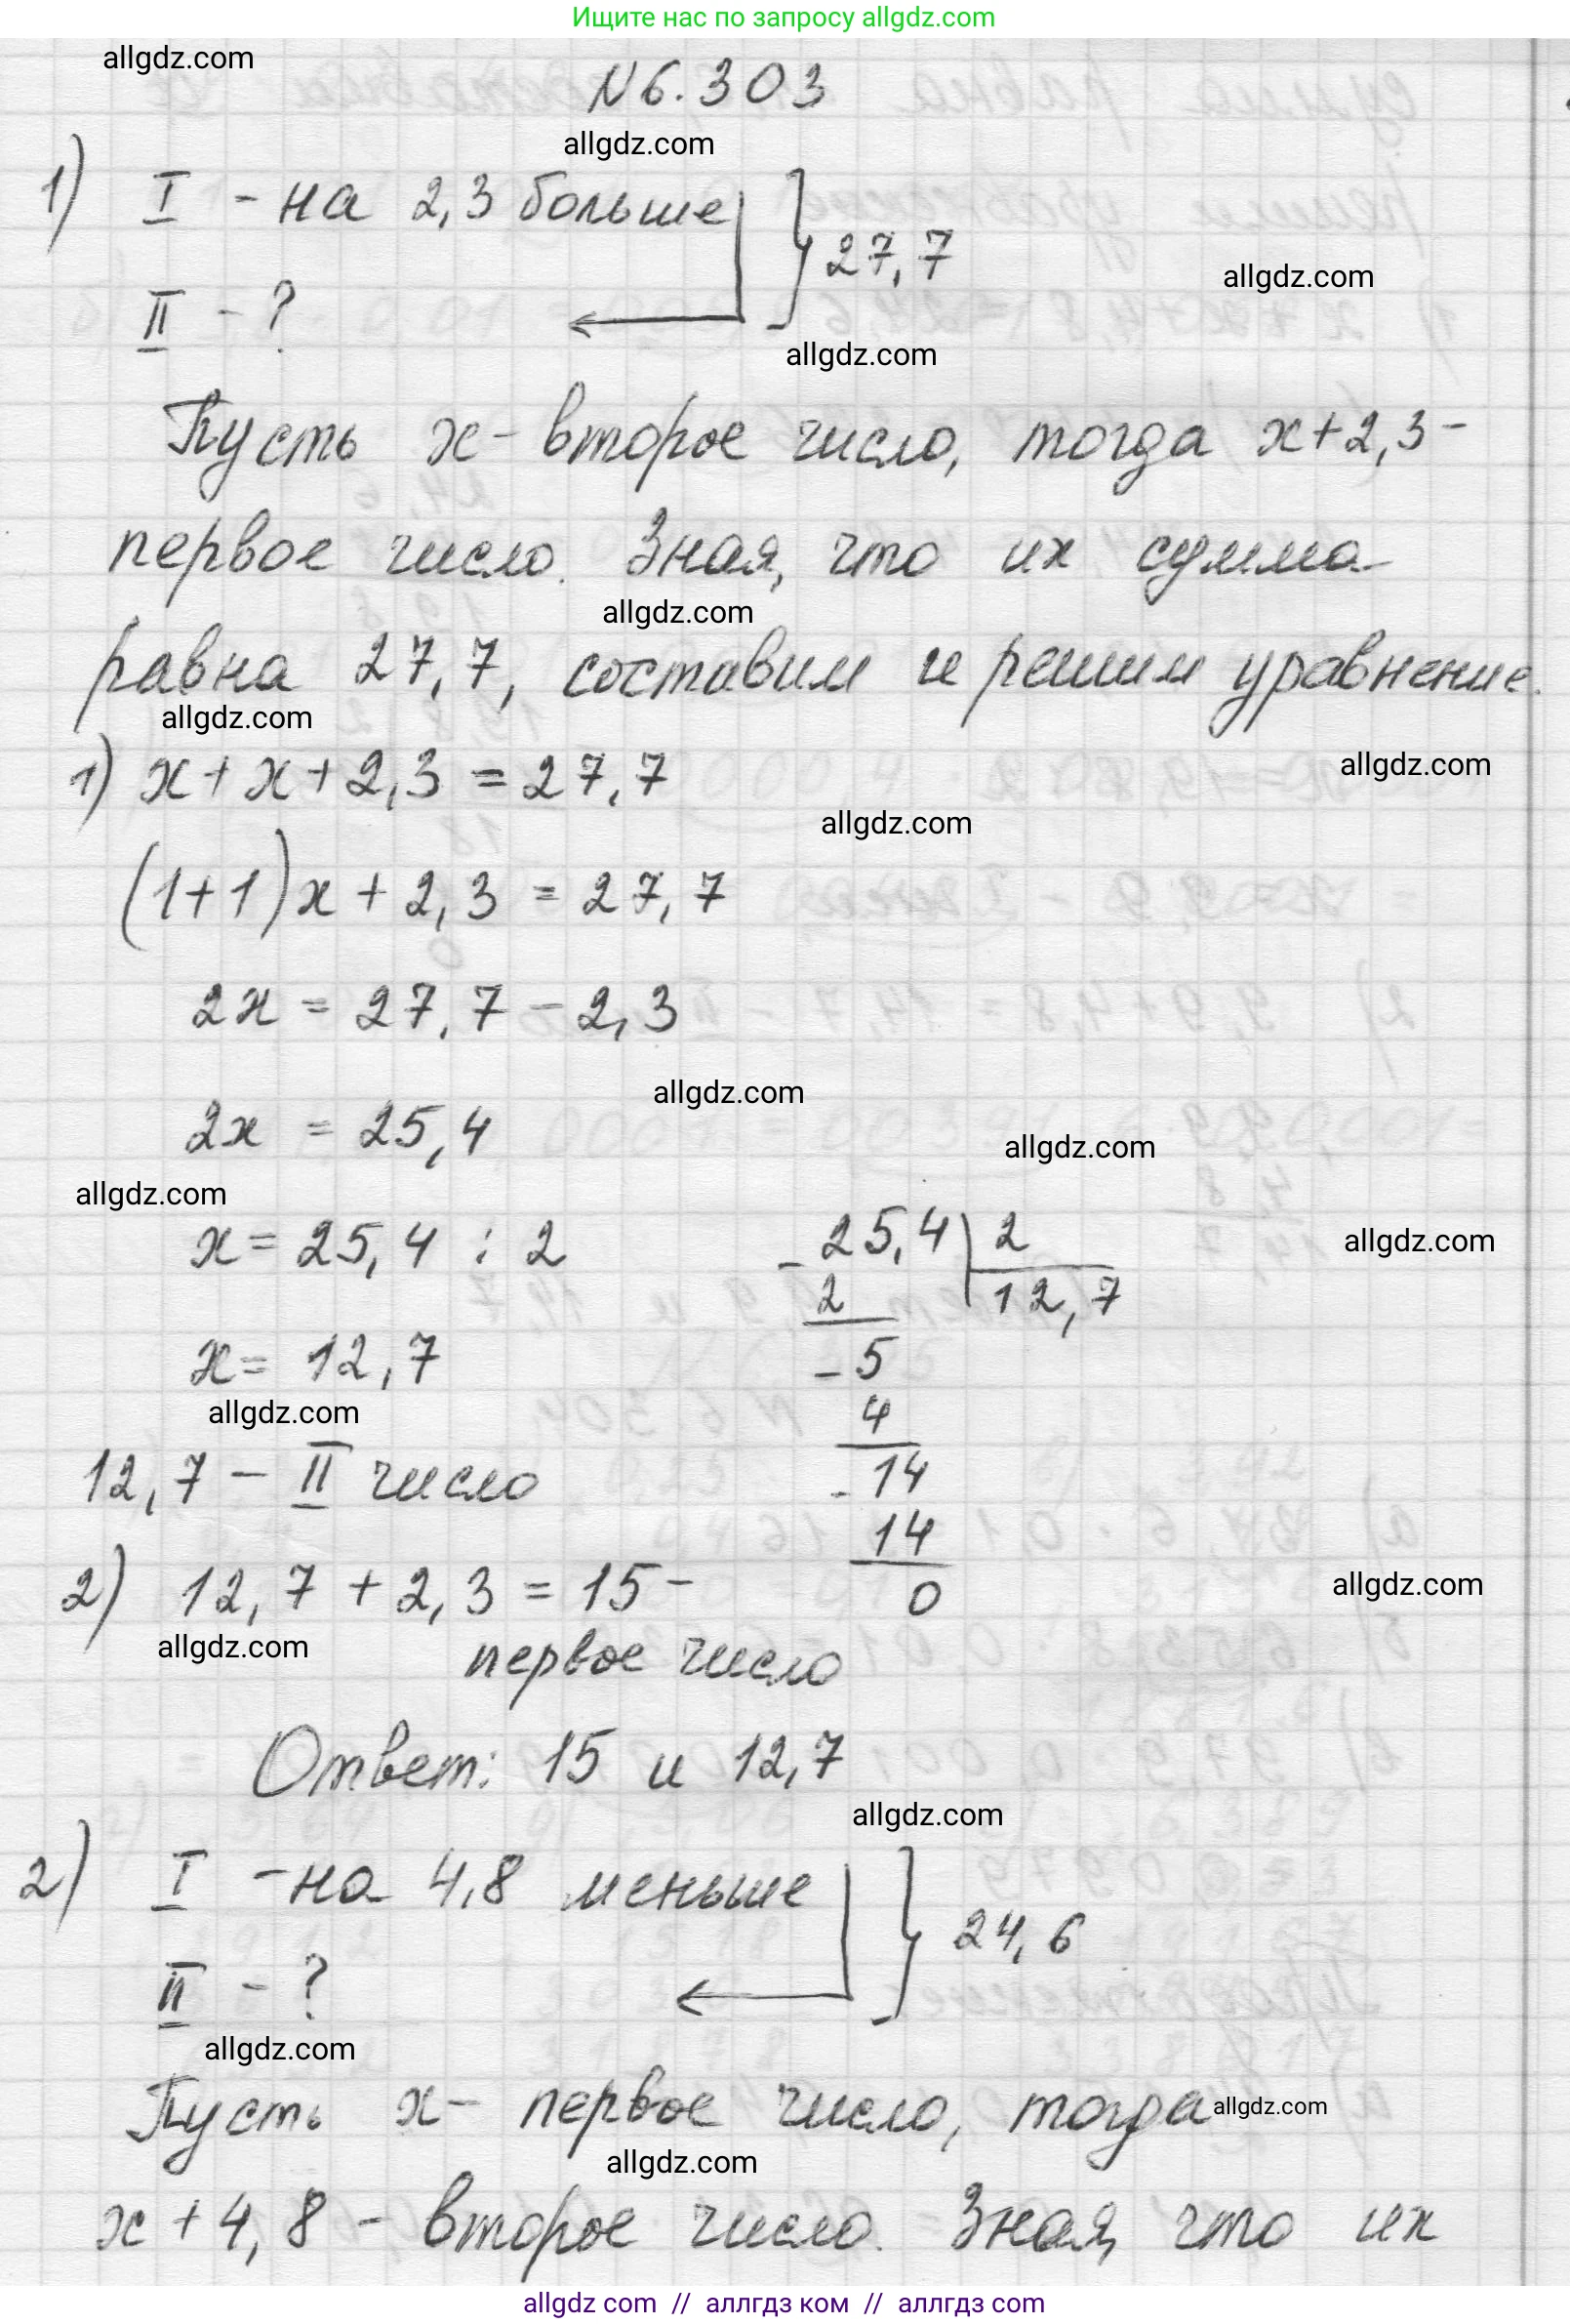 Ищите нас по запросу allgdz.com
allgdz.com
N6.303
allgdz.com
1) I - на 2,3 больше
27,7
allgdz.com
II - ?
allgdz.com
Пусть x - второе число, тогда x+2,3 -
первое число. Зная, что их сумма
allgdz.com
равна 27,7, составим и решим уравнение.
allgdz.com
1) x + x + 2,3 = 27,7
allgdz.com
allgdz.com
(1+1)x + 2,3 = 27,7
2x = 27,7 - 2,3
allgdz.com
2x = 25,4
allgdz.com
allgdz.com
x = 25,4 : 2
- 25,4 | 2
allgdz.com
2 12,7
x = 12,7
- 5
allgdz.com
4
12,7 - II число
- 14
14
2) 12,7 + 2,3 = 15 -
0
allgdz.com
allgdz.com
первое число
Ответ: 15 и 12,7
allgdz.com
2) I - на 4,8 меньше
24,6
II - ?
allgdz.com
Пусть x - первое число, тогда
allgdz.com
allgdz.com
x + 4,8 - второе число. Зная, что их
allgdz com // аллгдз ком // аллгдз com